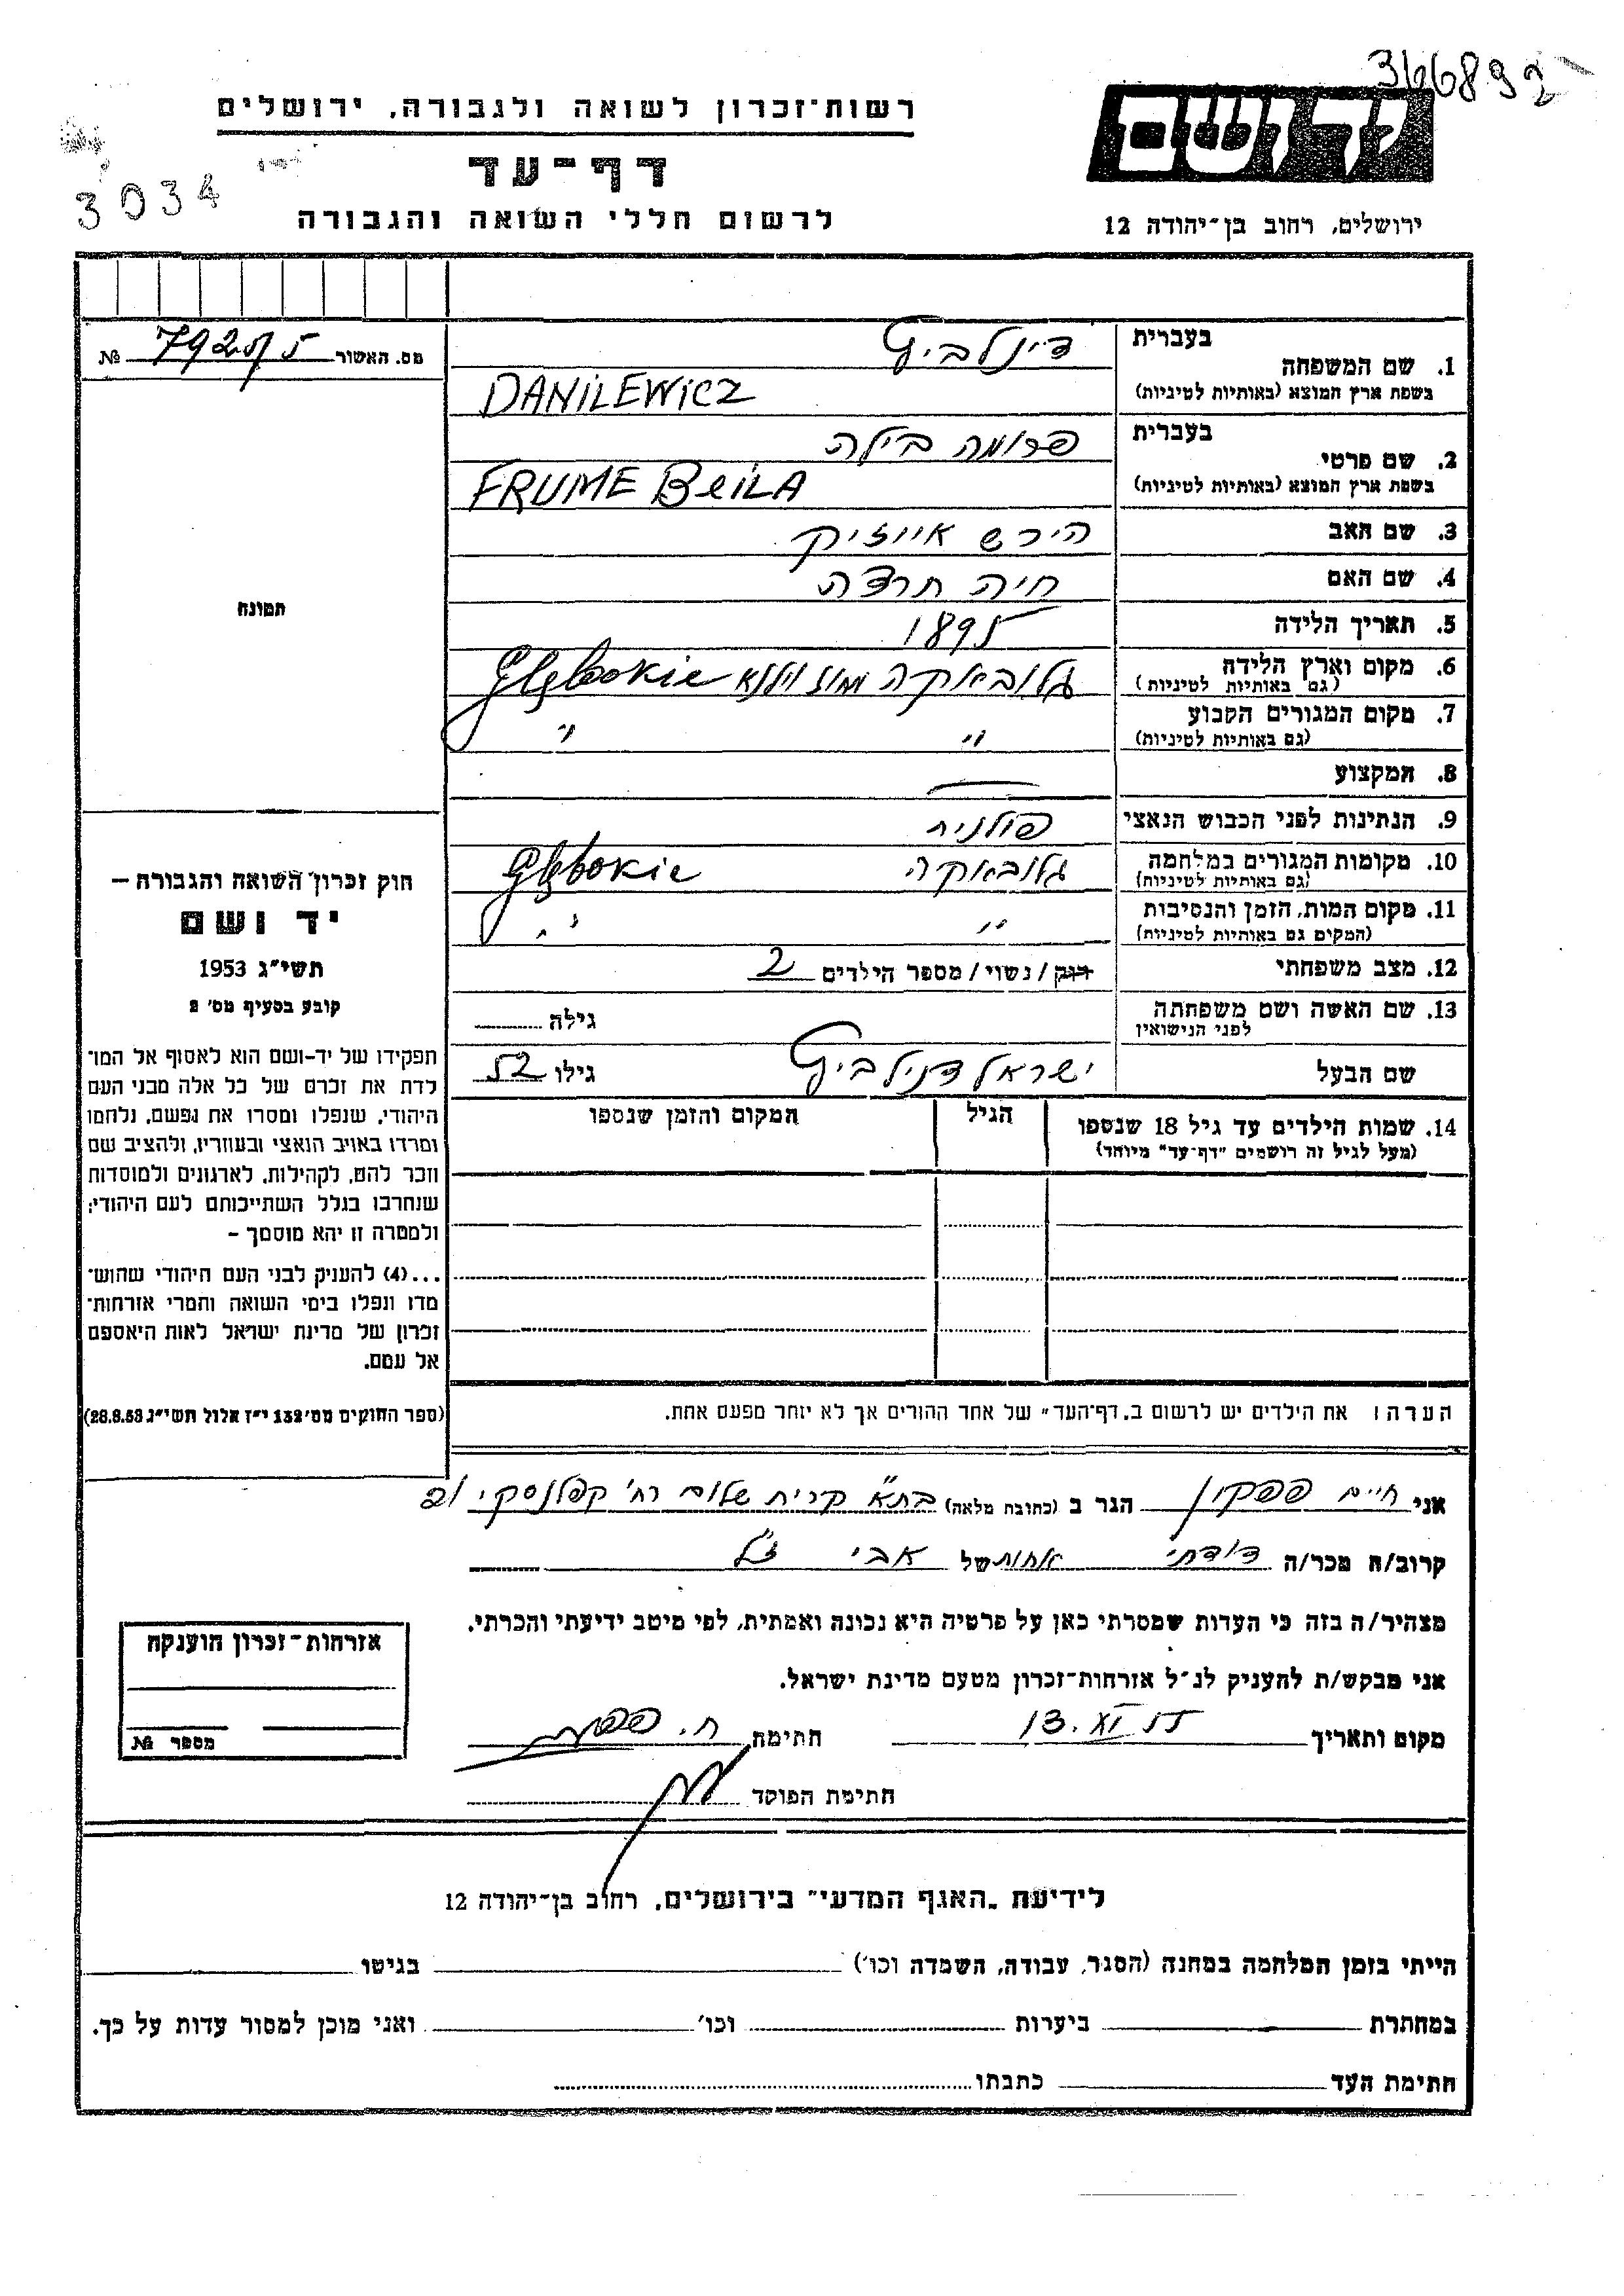 366892
רשות־זכרון לשואה ולגבורה, ירושלים
דף־עד
3034
לרשום חללי השואה והגבורה
יד ושם
ירושלים, רחוב בן־יהודה 12
מס. האשור № 
1. שם המשפחה
בעברית
בשפת ארץ המוצא (באותיות לטיניות) DANILEWICZ
2. שם פרטי
בעברית פרומה בילה
בשפת ארץ המוצא (באותיות לטיניות) FRUME BEILA
3. שם האב הירש אייזיק
4. שם האם חיה
5. תאריך הלידה 1895
6. מקום וארץ הלידה (גם באותיות לטיניות) גלובאקה מחוז וילנא Głębokie
7. מקום המגורים הקבוע (גם באותיות לטיניות) " "
8. המקצוע —
9. הנתינות לפני הכבוש הנאצי פולנית
10. מקומות המגורים במלחמה (גם באותיות לטיניות) גלובאקה Głębokie
11. מקום המות, הזמן והנסיבות (המקום גם באותיות לטיניות) " "
12. מצב משפחתי רווק/נשוי/מספר הילדים 2
13. שם האשה ושם משפחתה לפני הנישואין גילה
שם הבעל ישראל דנילביץ גילו 52
14. שמות הילדים עד גיל 18 שנספו (מעל לגיל זה רושמים "דף־עד" מיוחד) הגיל המקום והזמן שנספו
הערה: את הילדים יש לרשום ב"דף־העד" של אחד ההורים אך לא יותר מפעם אחת.
תמונה
חוק זכרון השואה והגבורה –
יד ושם
תשי״ג 1953
קובע בסעיף מס׳ 2
תפקידו של יד־ושם הוא לאסוף אל המו־
לדת את זכרם של כל אלה מבני העם
היהודי, שנפלו ומסרו את נפשם, נלחמו
ומרדו באויב הנאצי ובעוזריו, ולהציב שם
וזכר להם, לקהילות, לארגונים ולמוסדות
שנחרבו בגלל השתייכותם לעם היהודי;
ולמטרה זו יהא מוסמך –
...(4) להעניק לבני העם היהודי שהוש־
מדו ונפלו בימי השואה והמרי אזרחות־
זכרון של מדינת ישראל לאות היאספם
אל עמם.
(ספר החוקים מס׳ 132 י״ז אלול תשי״ג 28.8.53)
אני חיים פפקין הגר ב (כתובת מלאה) בת״א קרית שלום רח׳ קפלנסקי
קרוב/ה מכר/ה דודתי אחות של אבי ז״ל
מצהיר/ה בזה כי העדות שמסרתי כאן על פרטיה היא נכונה ואמתית, לפי מיטב ידיעתי והכרתי.
אני מבקש/ת להעניק לנ״ל אזרחות־זכרון מטעם מדינת ישראל.
מקום ותאריך 13.XI.55 חתימת ח.
חתימת הפוקד
אזרחות־זכרון הוענקה
מספר №
לידיעת "האגף המדעי" בירושלים, רחוב בן־יהודה 12
הייתי בזמן המלחמה במחנה (הסגר, עבודה, השמדה וכו׳) בגיטו
במחתרת ביערות וכו׳ ואני מוכן למסור עדות על כך.
חתימת העד כתבתו